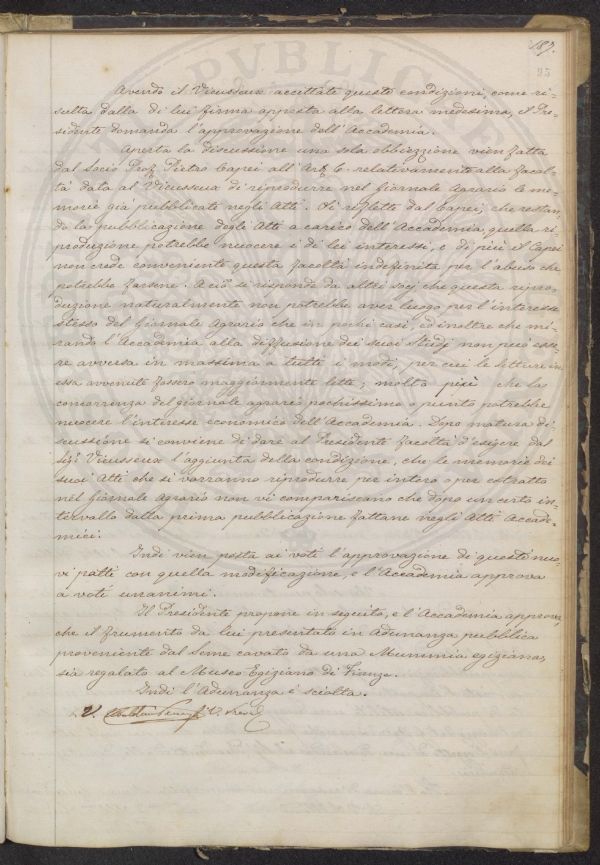 187.
95
Avendo il Vieusseux accettate queste condizioni, come ri-
sulta dalla di lui firma apposta alla lettera medesima, il Pre-
sidente domanda l'approvazione dell'Accademia.
Aperta la discussione una sola obbiezzione vien fatta
dal Socio Prof. Pietro Capei all'Art. 6. relativamente alla facol-
ta' data al Vieusseux di riprodurre nel Giornale Agrario le me-
morie già pubblicate negli Atti. Si reflette dal Capei, che restan-
do la pubblicazione degli Atti a carico dell'Accademia, quella ri-
produzione potrebbe nuocere i di lei interessi, e di più il Capei
non crede conveniente questa facoltà indefinita per l'abuso che
potrebbe farsene. A ciò si risponde da altri socj che questa ripro-
duzione naturalmente non potrebbe aver luogo per l'interesse
stesso del Giornale Agrario che in pochi casi, ed inoltre che mi-
rando l'Accademia alla diffusione dei suoi Studj non può esse-
re avversa in massima a tutti i modi, per cui le letture in
essa avvenute fossero maggiormente lette, molto più che la
concorrenza del giornale agrario pochissimo o punto potrebbe
nuocere l'interesse economico dell'Accademia. Dopo matura di-
scussione si conviene di dare al Presidente facoltà d'esigere dal
Sig.r Vieusseux l'aggiunta della condizione, che le memorie dei
suoi Atti che si vorranno riprodurre per intero o per estratto
nel Giornale Agrario non vi compariscano che dopo un certo in-
tervallo dalla prima pubblicazione fattane negli Atti Accade-
mici.
Indi vien posta ai voti l'approvazione di questi nuo-
vi patti con quella modificazione, e l'Accademia approva
a voti unanimi.
Il Presidente propone in seguito, e l'Accademia approva,
che il frumento da lui presentato in Adunanza pubblica
proveniente dal seme cavato da una Mummia egiziana,
sia regalato al Museo Egiziano di Firenze.
Indi l'Adunanza è sciolta.
V.